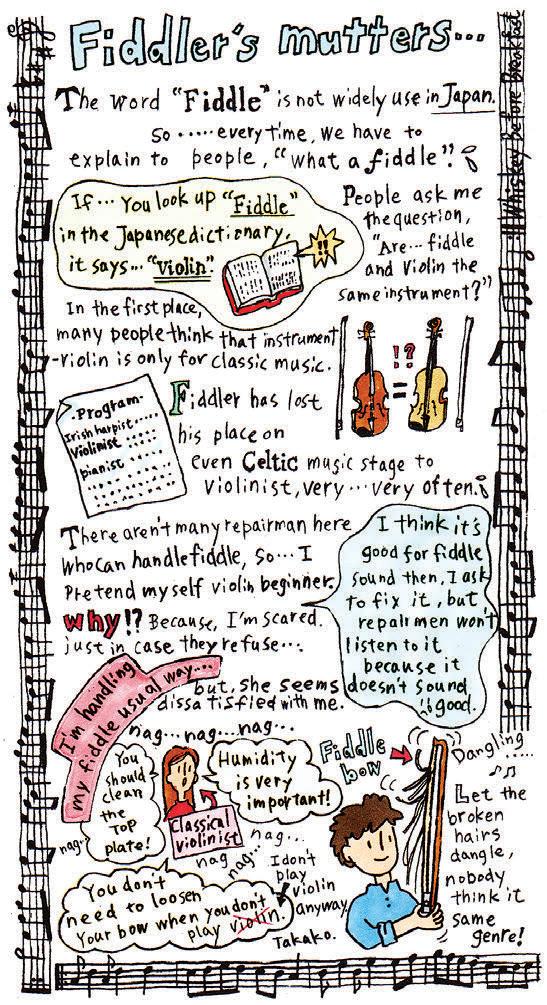 Fiddler's mutters...
Whiskey before breakfast
The word "Fiddle" is not widely use in Japan.
So ..... every time, we have to
explain to people, "what a fiddle"?
If... You look up "Fiddle"
in the Japanese dictionary,
it says... "Violin"
!!
People ask me
the question,
"Are... fiddle
and Violin the
same instrument?"
In the first place,
many people think that instrument
-violin is only for classic music.
!?
=
-Program-
Irish harpist....
Violinist ....
pianist ....
Fiddler has lost
his place on
even Celtic music stage to
violinist, very... very often.
There aren't many repairman here
who can handle fiddle, so... I
Pretend myself violin beginner.
why!? Because, I'm scared.
just in case they refuse...
I think it's
good for fiddle
sound then, I ask
to fix it, but
repair men won't
listen to it
because it
doesn't sound
good.
I'm handling
my fiddle usual way....
but, she seems
dissatisfied with me.
nag... nag... nag...
You
should
clean
the
Top
plate!
Humidity
is very
important!
Classical
violinist
nag...
nag...
nag
nag...
You don't
need to loosen
Your bow when you don't
play violin.
I don't
play
violin
anyway.
Takako.
Fiddle
bow
Dangling....
Let the
broken
hairs
dangle,
nobody
think it
same
genre!